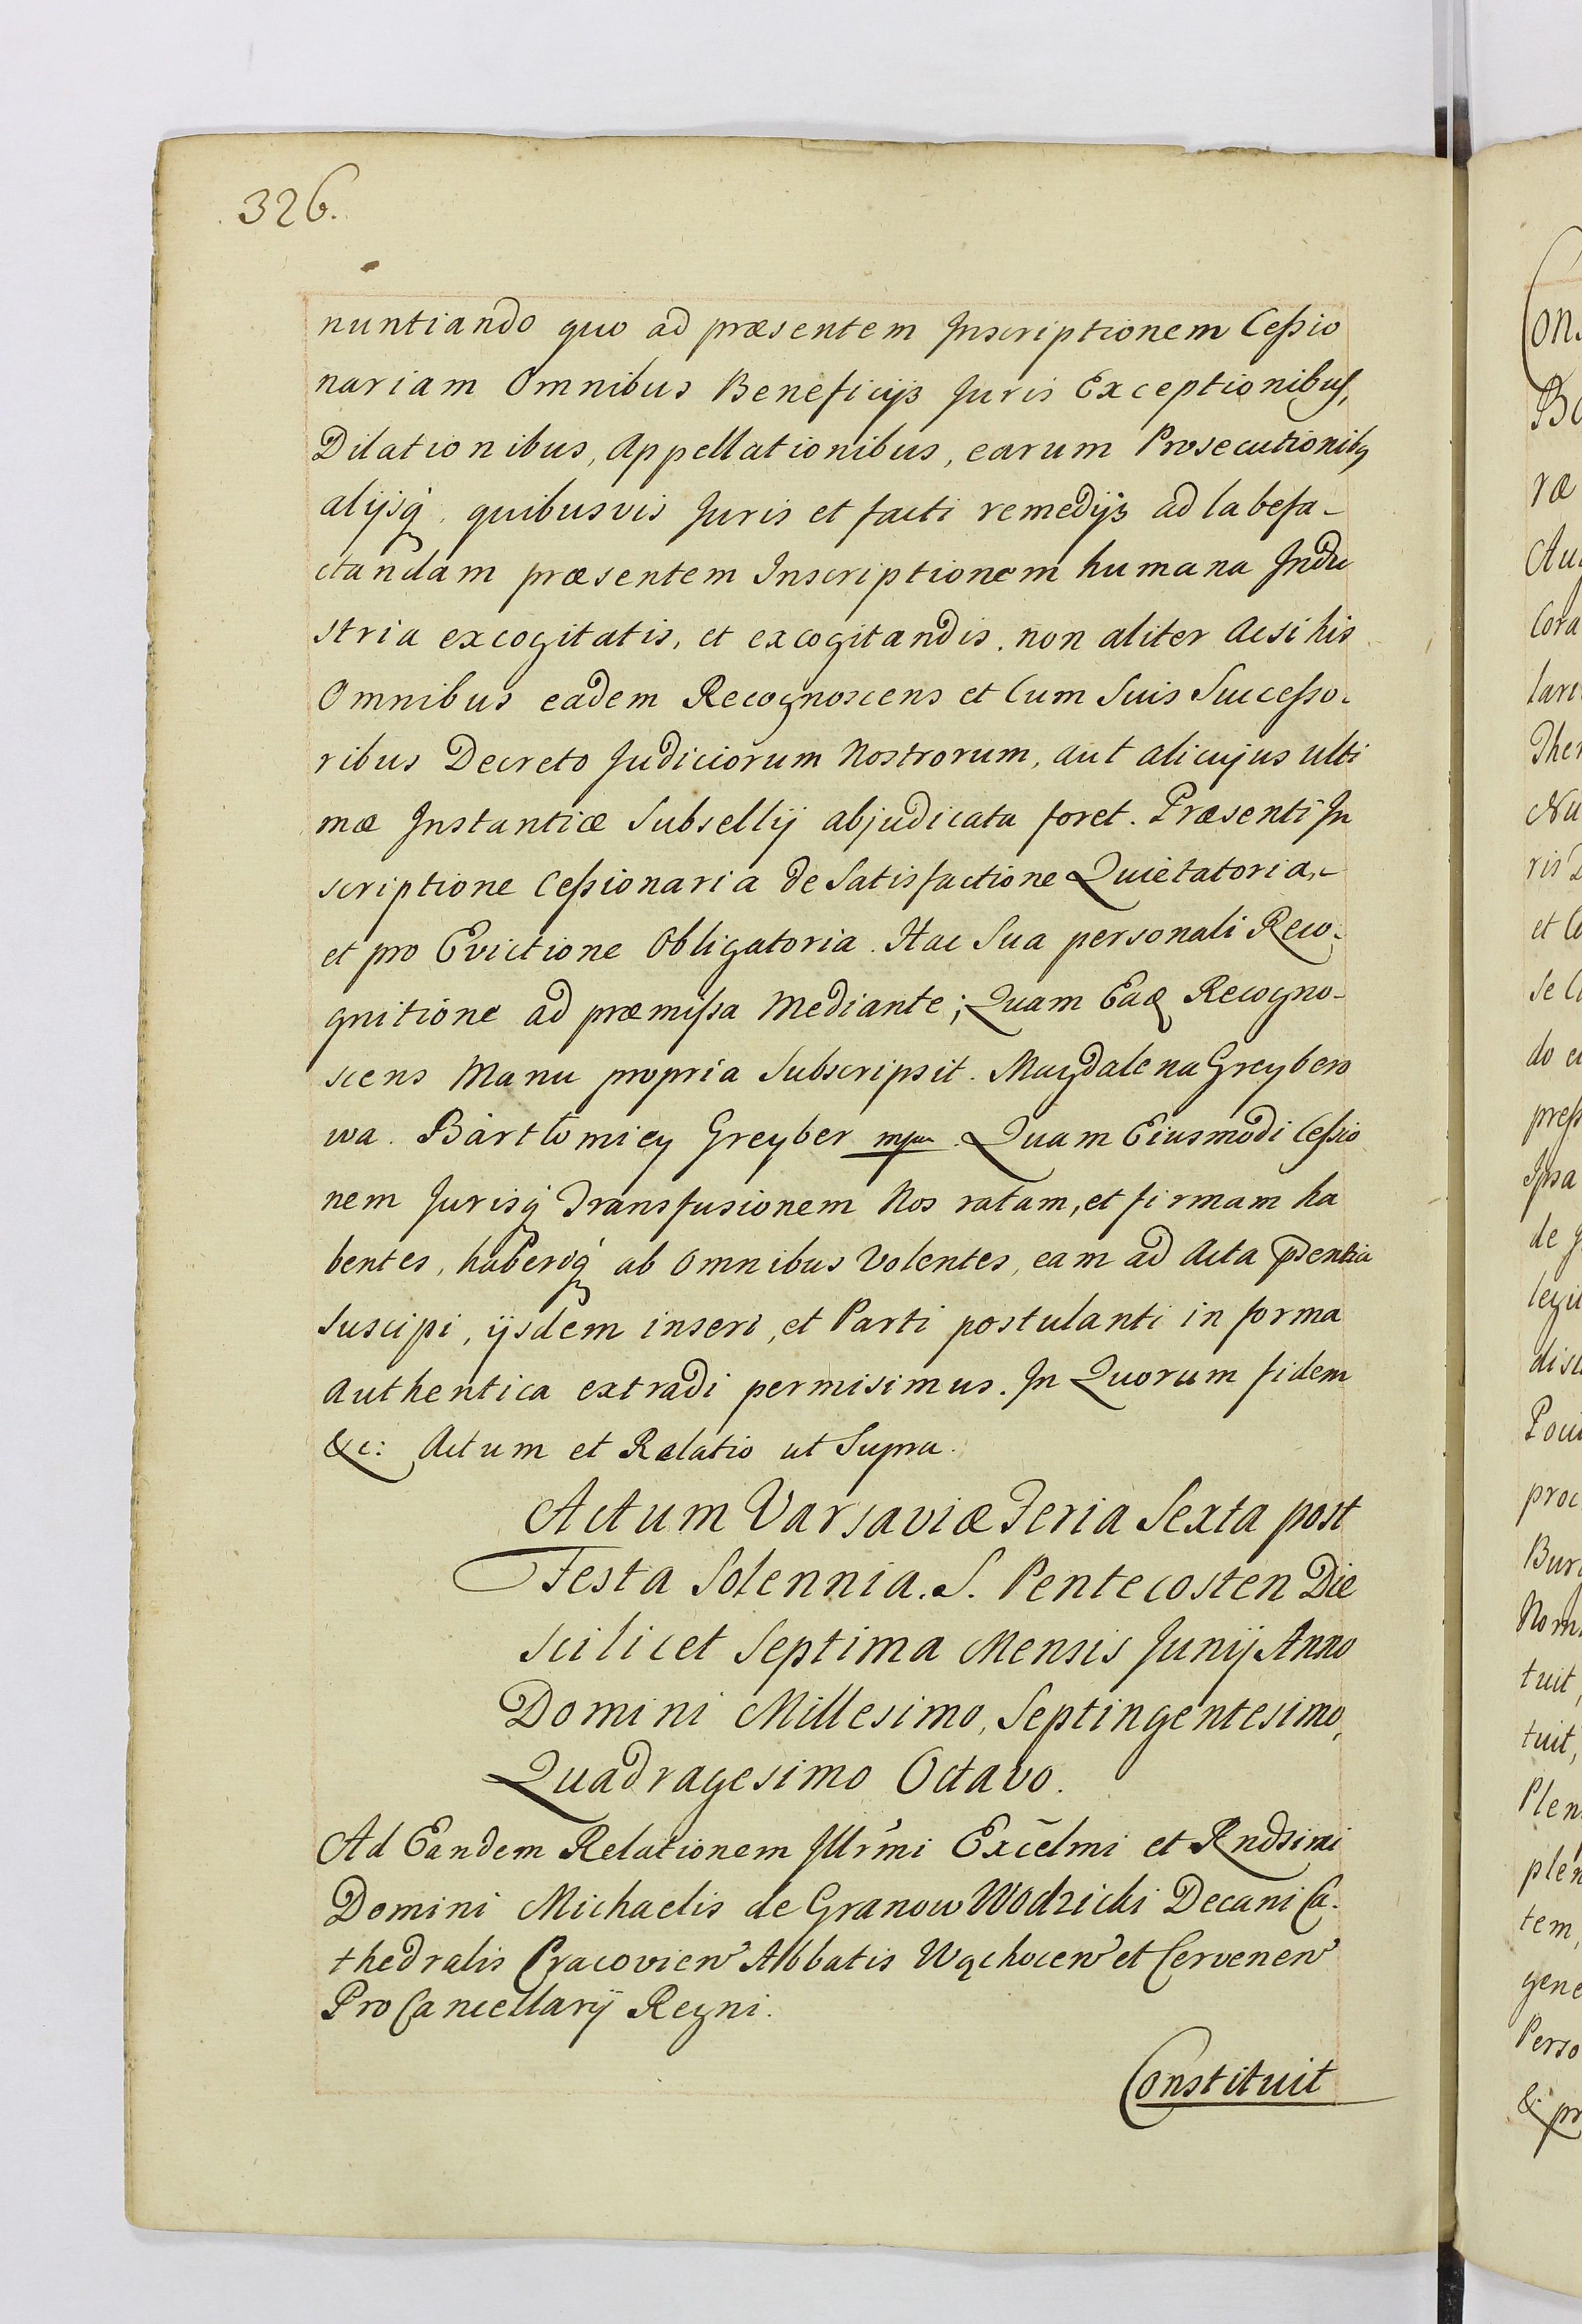 326.
nuntiando quo ad præsentem Inscriptionem Cessio
nariam Omnibus Beneficijs Juris Exceptionibus,
Dilationibus, Appellationibus, earum Prosecutionibꝫ
alijsq̓ quibusvis Juris et facti remedijs ad labefa-
ctandam præsentem Inscriptionem humana Indu
stria excogitatis, et excogitandis. non aliter acsi his
Omnibus eadem Recognoscens et Cum Suis Successo-
ribus Decreto Judiciorum Nostrorum, aut alicujus ulti
mæ Instantiæ Subsellij abjudicata foret. Præsenti In
scriptione Cessionaria de Satisfactione Quietatoria,
et pro Evictione Obligatoria. Hac Sua personali Reco-
gnitione ad præmissa Mediante; Quam Eaq̨ Recogno-
scens Manu propria Subscripsit. Magdalena Greybero
wa. Bartłomiey Greyber mpa. Quam Eiusmodi Cessio
nem Jurisq̓ Transfusionem Nos ratam, et firmam ha
bentes, haberiq̓ ab Omnibus Volentes, eam ad Acta p̄sentia
Suscipi, ijsdem inseri, et Parti postulanti in forma
authentica extradi permisimus. In Quorum fidem
&c: Actum et Relatio ut Supra.
Actum Varsaviæ Feria Sexta post
Festa Solennia. S. Pentecosten Die
scilicet Septima Mensis Junij Anno
Domini Millesimo, Septingentesimo,
Quadragesimo Octavo.
Ad Eandem Relationem Illr̃mi Exc̃elmi et Rndsimi
Domini Michaelis de Granow Wodzicki Decani Ca-
thedralis Cracovien̄ Abbatis Wąchocen̄ et Cervenen̄
Pro Cancellarij Regni.
Constituit